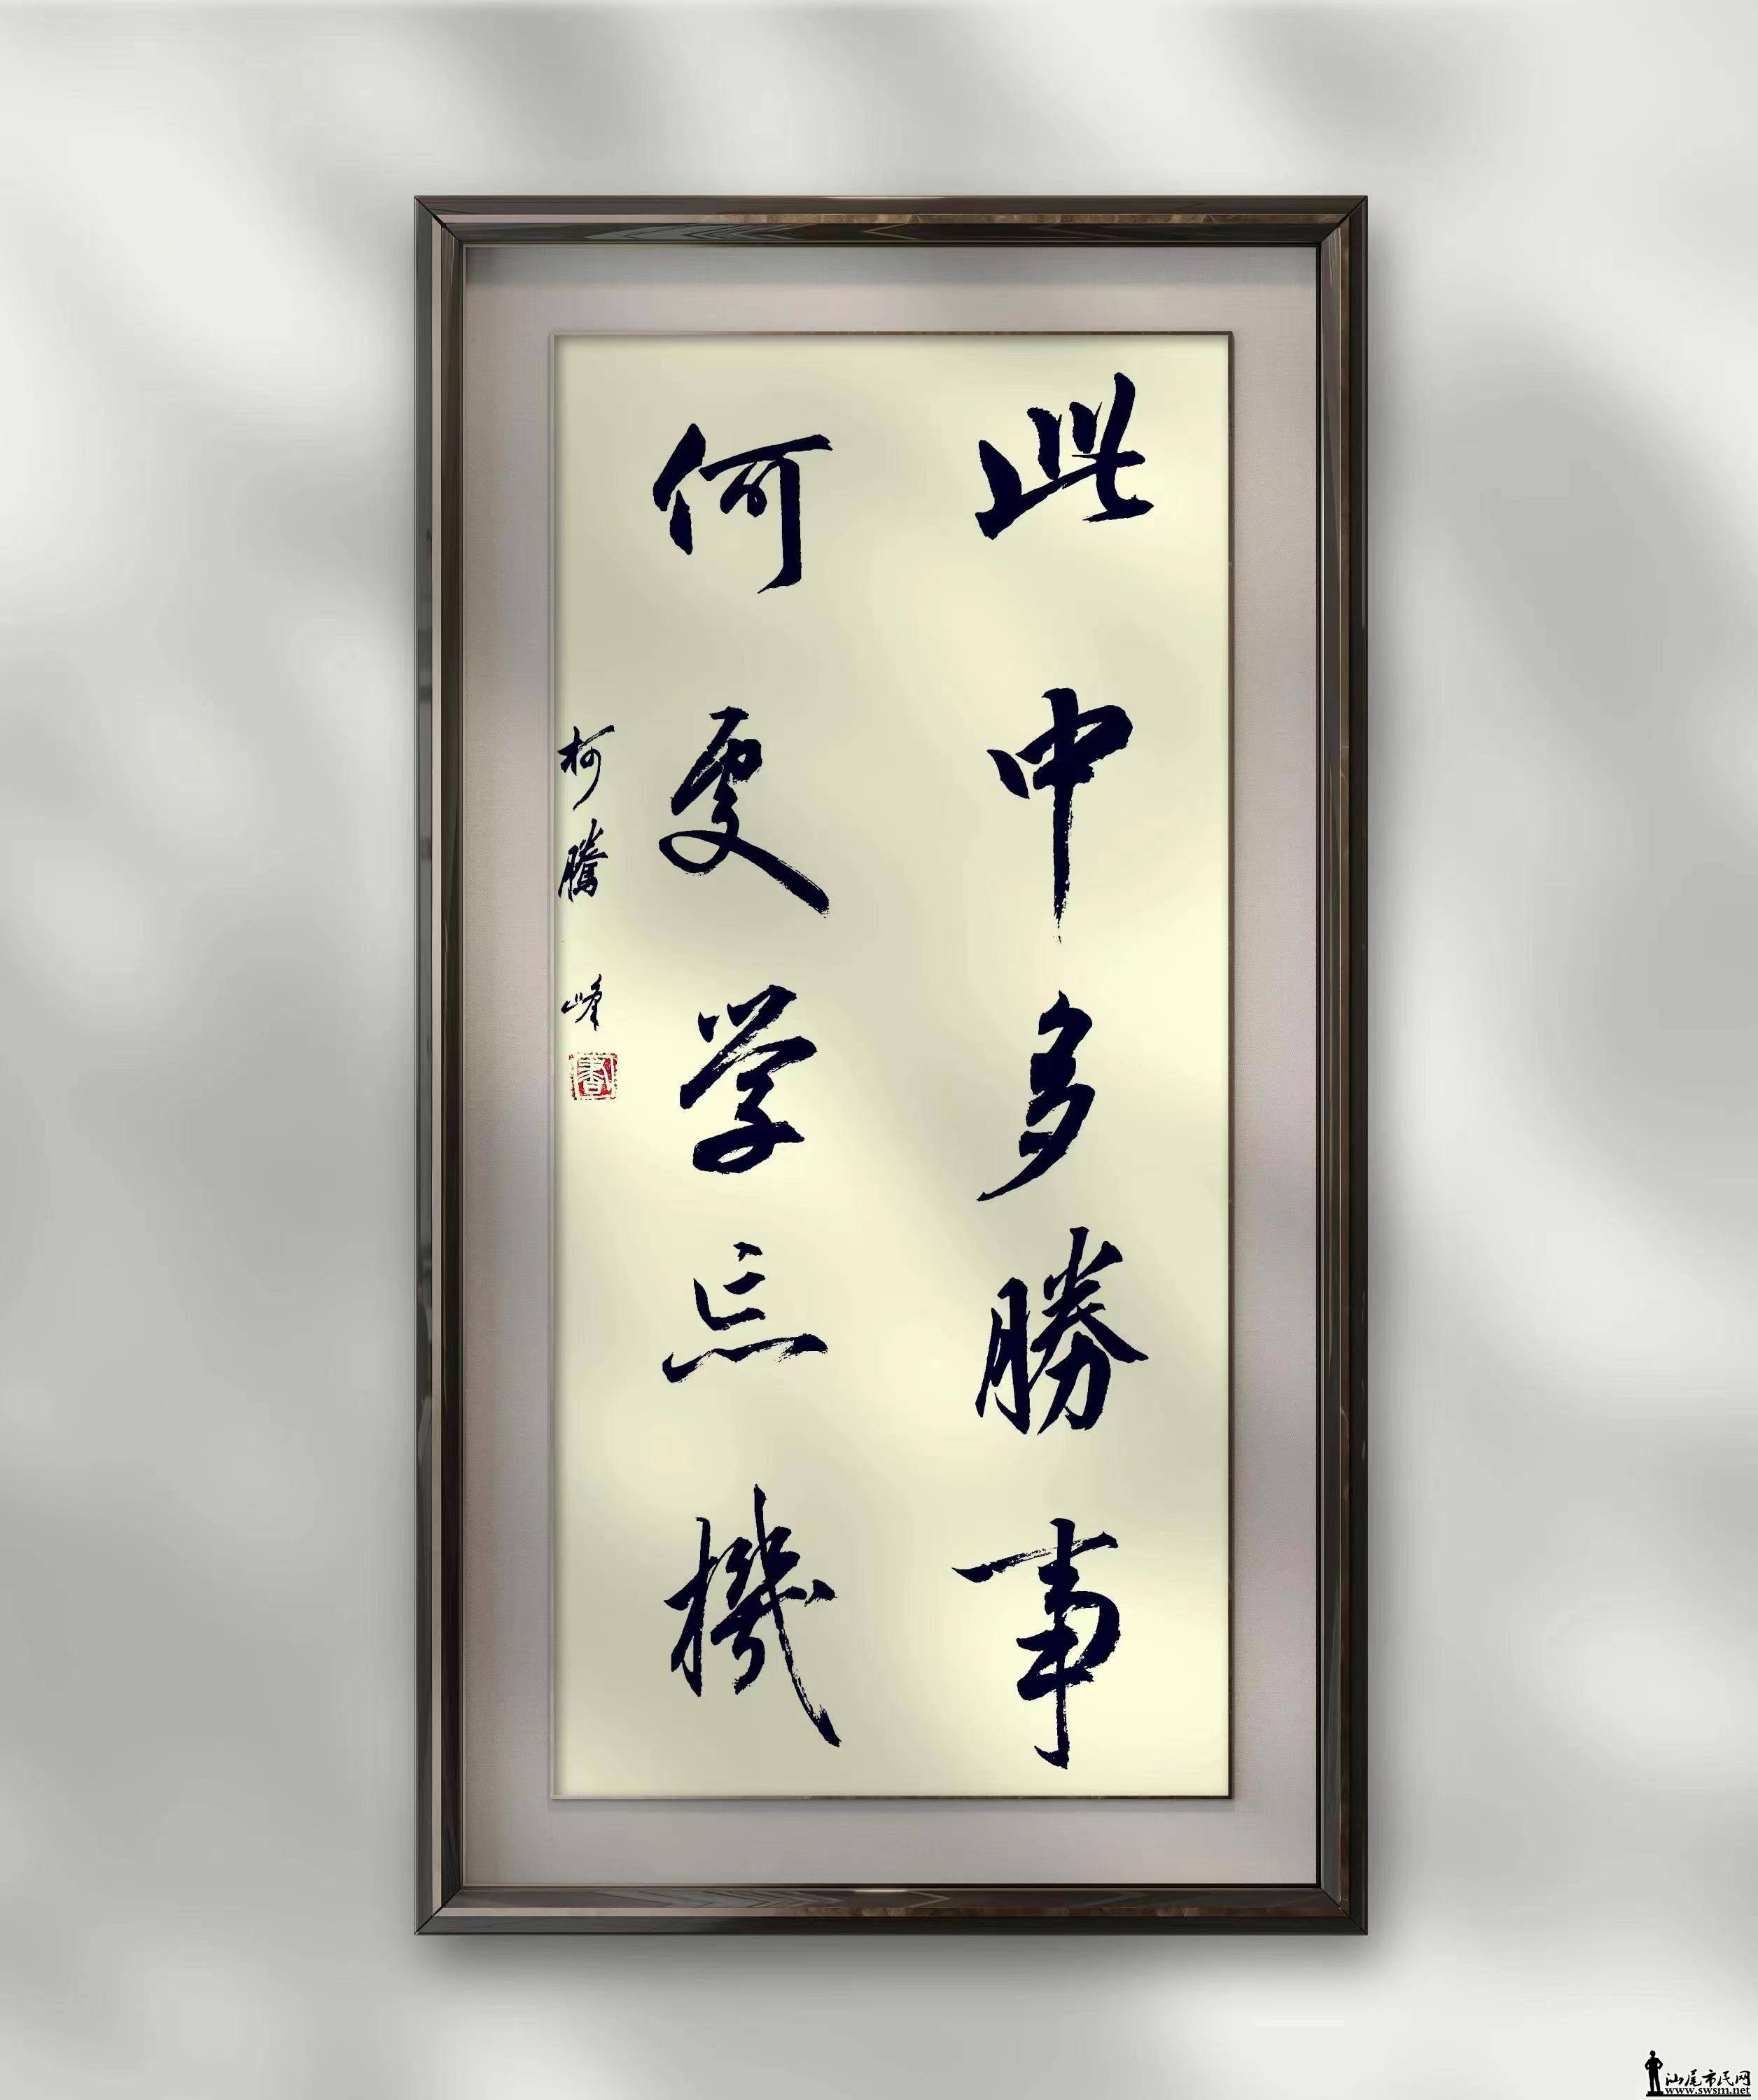 此中多勝事
何更学忘機
柯騰峰
汕尾市民网
www.swsm.net